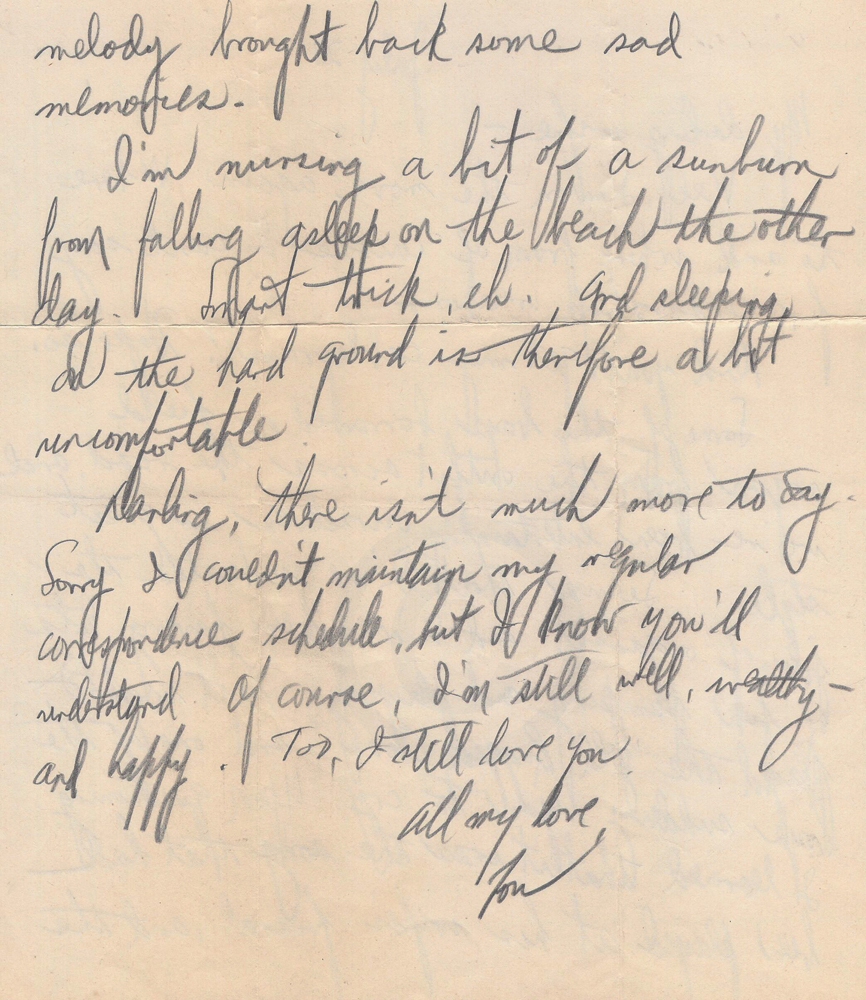 melody brought back some sad
memories.
I'm nursing a bit of a sunburn
from falling asleep on the beach the other
day. Smart trick, eh. And sleeping
on the hard ground is therefore a bit
uncomfortable
Darling, there isn't much more to say.
Sorry I couldn't maintain my regular
correspondence schedule, but I know you'll
understand Of course, I'm still well, wealthy-
and happy. Too, I still love you.
All my love,